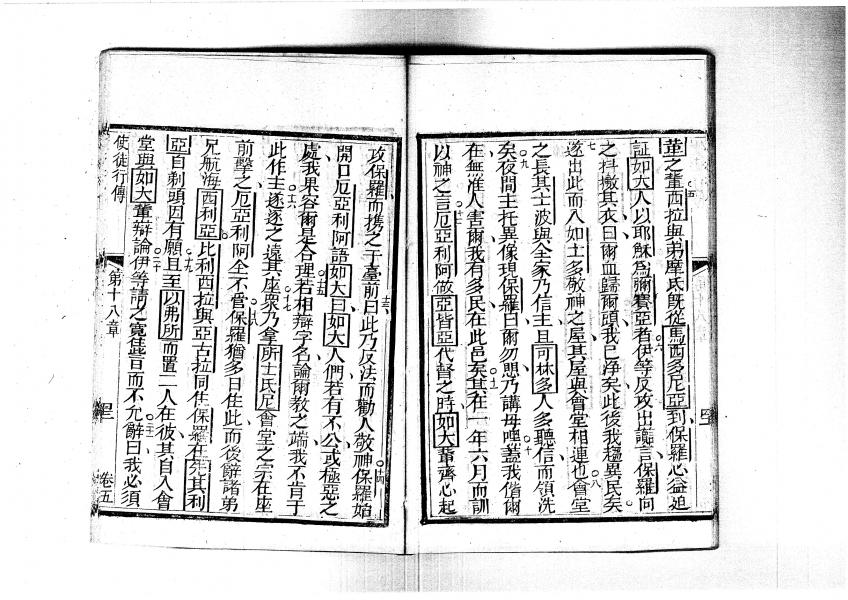 華之輩西拉與弟摩氐旣從馬西多尼亞到保羅心益迫
証如大人以耶穌爲彌賽亞者伊等反攻出譭言保羅向
之抖撒其衣曰爾血歸爾頭我已净矣此後我趨異民矣
遂出此而入如士多敬神之屋其屋與會堂相連也會堂
之長其士波與全家乃信主且可林多人多聽信而領洗
矣夜間主托異像現保羅曰爾勿懼乃講毋啞蓋我偕爾
在無准人害爾我有多民在此邑矣其在一年六月而訓
以神之言厄亞利阿做亞皆亞代督之時如大輩齊心起
攻保羅而携之于臺前曰此乃反法而勸人敬神保羅始
開口厄亞利阿語如大曰如大人們若有不公或極惡之
處我果容爾是合理若相辯字名論爾教之端我不肯于
此作主遂逐之遠其座衆乃拿所士氐尼會堂之宗在座
前擊之厄亞利阿全不管保羅猶多日住此而後辭諸弟
兄航海西利亞比利西拉與亞古拉同徃保羅在其利
亞自剃頭因有願且至以弗所而置二人在彼其自入會
堂與如大輩辯論伊等請之寬住些日而不允辭曰我必須
使徒行傳
第十八章
卷五